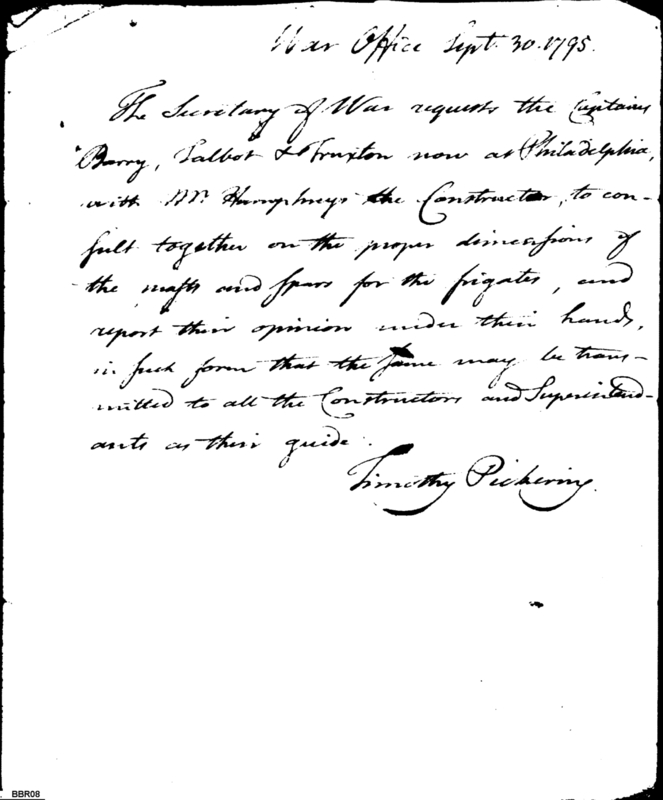 War Office Sept. 30. 1795.
The Secretary of War requests the Captains
Barry, Talbot & Truxton now at Philadelphia,
with Mr. Humphreys the Constructor, to con-
sult together on the proper dimensions of
the masts and spars for the frigates, and
report their opinion under their hands,
in such form that the same may be trans-
mitted to all the Constructors and Superintend-
ants as their guide.
Timothy Pickering.
BBR08